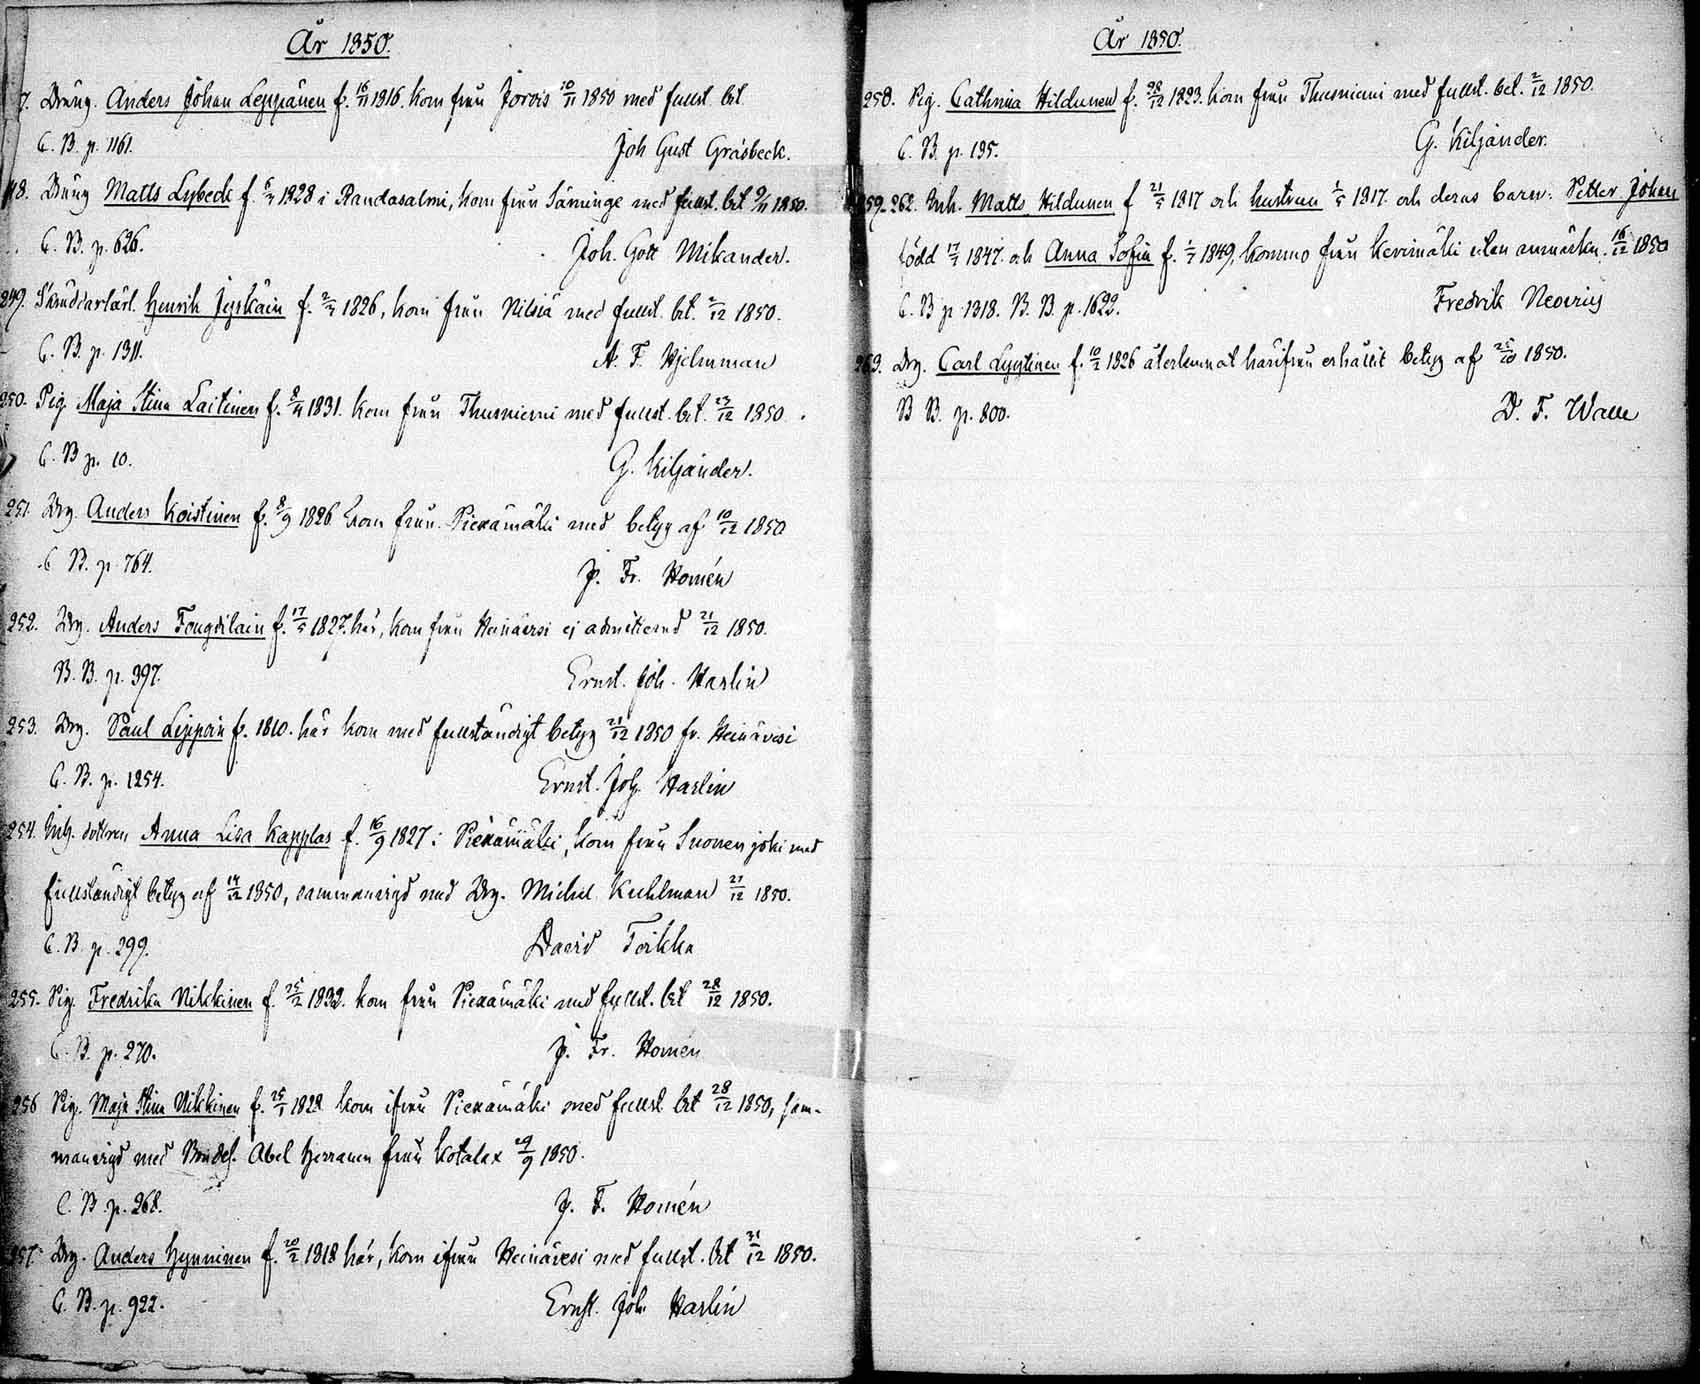 År 1850.
7. Dräng. Anders Johan Leppänen f. 16/11 1816. kom från Jorois 10/11 1850 med fullst. bet.
C. B. p. 1161.
Joh Gust Gråsbeck.
48. Dräng Matts Lybeck f. 1828 i Randasalmi, kom från Säminge med fullst. bet 9/11 1850.
C. B. p. 626.
Joh. Gott Mikander.
249. Skräddarlärl. Henrik Jyskäin f. 1826, kom från Nilsiä med fullst. bet. 2/12 1850.
C. B. p. 1311.
A. F. Hjelmman
250. Pig. Maja Stina Laitinen f. 8/4 1831. kom från Thusniemi med fullst. bet. 23/12 1850.
C. B p. 10.
G. Kiljander.
251 Drg. Anders Koistinen f. 8/9 1826 kom från Piexämäki med betyg af 10/12 1850
C B. p. 764.
J. Fr. Homén
252. Drg. Anders Fougdilain f. 17/5 1827. här, kom från Heinävesi ej admitterad 21/12 1850.
B. B. p. 397.
Ernst. Joh. Harlin
253. Drg. Paul Lippoin f. 1810. här kom med fullständigt betyg 21/12 1850 fr. Heinävesi
C. B. p. 1254.
Ernst. Joh. Harlin
254. Inh. dottren Anna Lisa Kapplas f. 16/9 1827 i Piexämäki, kom från Suonenjoki med
fullständigt betyg af 14/12 1850, sammanvigd med Drg. Michel Kuhlman 21/12 1850.
C. B. p. 299.
David Toikka
255. Pig. Fredrika Nikkinen f. 25/2 1832. kom från Piexämäki med fullst. bet 28/12 1850.
C. B. p. 270.
J. Fr. Homén
256 Pig. Maja Stina Nikkinen f. 25/1 1828 kom ifrån Piexämäki med fullst. bet 28/12 1850, sam-
manvigd med Bondes. Abel Herranen från Kotalax 29/9 1850.
C. B. p. 268.
J. F. Homén
257. Drg. Anders Hynninen f. 20/2 1818 här, kom ifrån Heinävesi med fullst. bet 31/12 1850.
C. B. p. 922.
Ernst. Joh Harlin
År 1850.
258. Pig. Cathrina Hildunen f. 28/12 1823. kom från Thusniemi med fullst. bet. 2/12 1850.
C. B. p. 195.
G. Kiljander.
259-262. Inh. Matts Hildunen f 21/5 1817 och hustrun 1/5 1817. och deras barn: Petter Johan
född 17/7 1847. och Anna Sofia f. 1/7 1849, kommo från Kerimäki utan anmärkn. 16/12 1850
C. B p. 1318. B. B. p. 1622.
Fredrik Neovius
263. Drg. Carl Lyytinen f. 10/2 1826 återlemnat härifrån erhållit betyg af 25/10 1850.
B B. p. 800.
D. F. Walle